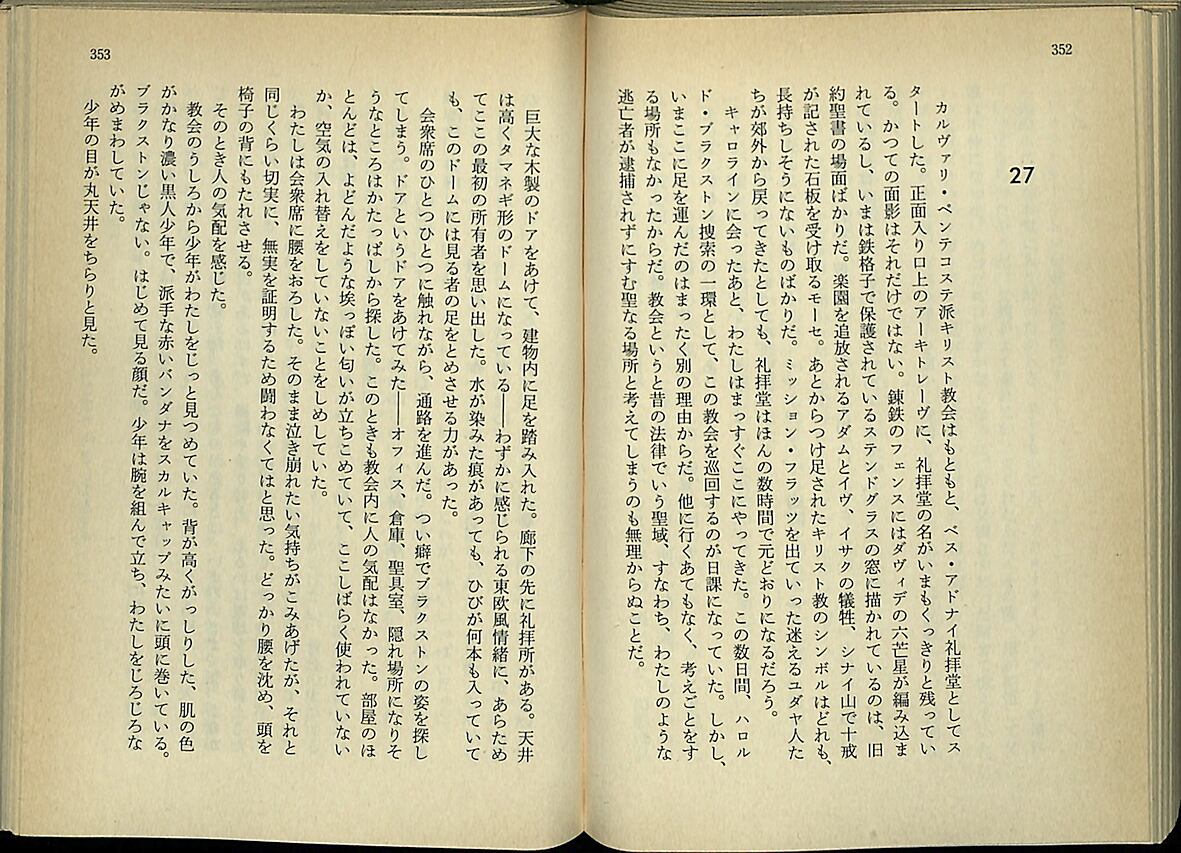 352
27
カルヴァリ・ペンテコステ派キリスト教会はもともと、ベス・アドナイ礼拝堂としてス
タートした。正面入り口上のアーキトレーヴに、礼拝堂の名がいまもくっきりと残ってい
る。かつての面影はそれだけではない。錬鉄のフェンスにはダヴィデの六芒星が編み込ま
れているし、いまは鉄格子で保護されているステンドグラスの窓に描かれているのは、旧
約聖書の場面ばかりだ。楽園を追放されるアダムとイヴ、イサクの犠牲、シナイ山で十戒
が記された石板を受け取るモーセ。あとからつけ足されたキリスト教のシンボルはどれも、
長持ちしそうにないものばかりだ。ミッション・フラッツを出ていった迷えるユダヤ人た
ちが郊外から戻ってきたとしても、礼拝堂はほんの数時間で元どおりになるだろう。
キャロラインに会ったあと、わたしはまっすぐここにやってきた。この数日間、ハロル
ド・ブラクストン捜索の一環として、この教会を巡回するのが日課になっていた。しかし、
いまここに足を運んだのはまったく別の理由からだ。他に行くあてもなく、考えごとをす
る場所もなかったからだ。教会というと昔の法律でいう聖域、すなわち、わたしのような
逃亡者が逮捕されずにすむ聖なる場所と考えてしまうのも無理からぬことだ。
353
巨大な木製のドアをあけて、建物内に足を踏み入れた。廊下の先に礼拝所がある。天井
は高くタマネギ形のドームになっている――わずかに感じられる東欧風情緒に、あらため
てここの最初の所有者を思い出した。水が染みた痕があっても、ひびが何本も入っていて
も、このドームには見る者の足をとめさせる力があった。
会衆席のひとつひとつに触れながら、通路を進んだ。つい癖でブラクストンの姿を探し
てしまう。ドアというドアをあけてみた――オフィス、倉庫、聖具室、隠れ場所になりそ
うなところはかたっぱしから探した。このときも教会内に人の気配はなかった。部屋のほ
とんどは、よどんだような埃っぽい匂いが立ちこめていて、ここしばらく使われていない
か、空気の入れ替えをしていないことをしめしていた。
わたしは会衆席に腰をおろした。そのまま泣き崩れたい気持ちがこみあげたが、それと
同じくらい切実に、無実を証明するため闘わなくてはと思った。どっかり腰を沈め、頭を
椅子の背にもたれさせる。
そのとき人の気配を感じた。
教会のうしろから少年がわたしをじっと見つめていた。背が高くがっしりした、肌の色
がかなり濃い黒人少年で、派手な赤いバンダナをスカルキャップみたいに頭に巻いている。
ブラクストンじゃない。はじめて見る顔だ。少年は腕を組んで立ち、わたしをじろじろな
がめまわしていた。
少年の目が丸天井をちらりと見た。